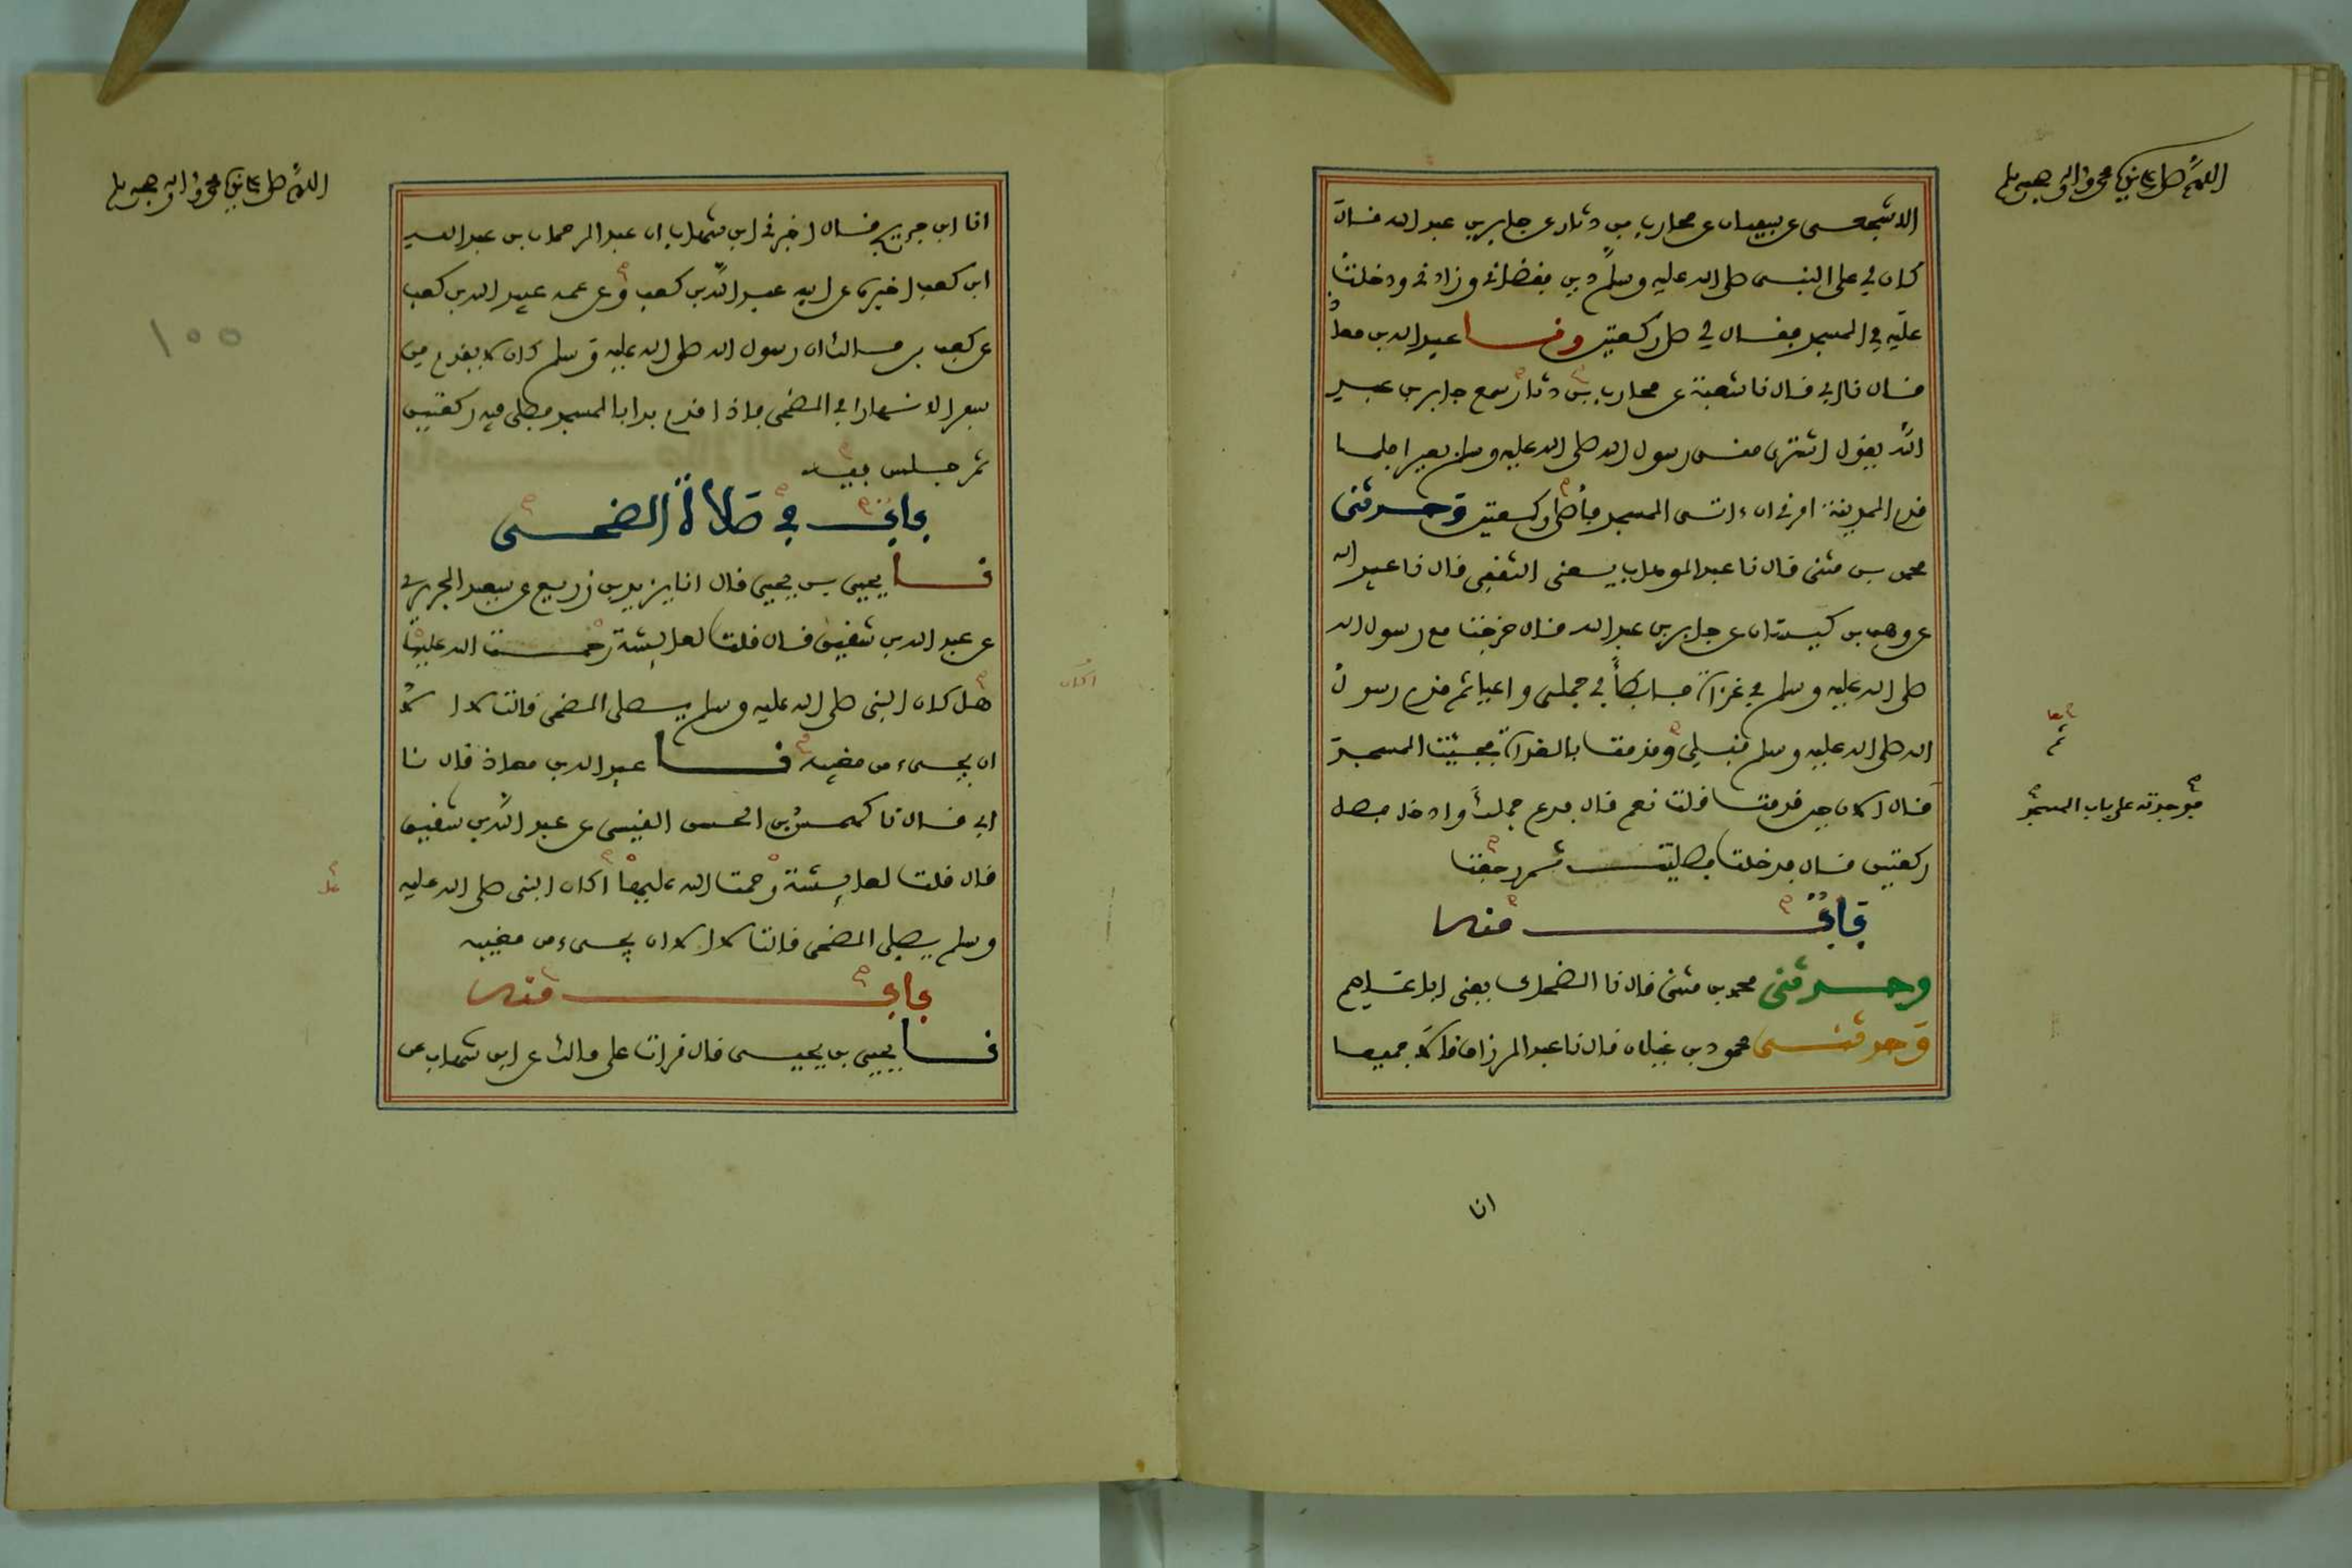 اللهم صل على نبينا محمد وآله وصحبه وسلم
الاشجعى عن سفيان عن محارب بن دثار عن جابر بن عبد الله قال
كان لي على النبى صلى الله عليه وسلم دين فقضانى وزادنى ودخلت
عليه في المسجد فقال لي صل ركعتين ونا عبيد الله بن معاذ
قال نا ابي قال نا شعبة عن محارب بن دثار سمع جابر بن عبد
الله يقول اشترى منى رسول الله صلى الله عليه وسلم بعيرا فلما
قدم المدينة امرنى ان ءاتى المسجد فأصلى ركعتين وحدثنى
محمد بن مثنى قال نا عبد الوهاب يعنى الثقفى قال نا عبيد الله
عن وهب بن كيسان عن جابر بن عبد الله قال خرجنا مع رسول الله
صلى الله عليه وسلم في غزاة فابطأ بي جملى واعيا ثم قدم رسول
الله صلى الله عليه وسلم قبلى وقدمت بالغداة فجئت المسجد
قال الان حين قدمت قلت نعم قال فدع جملك وادخل فصل
ركعتين قال فدخلت فصليت ثم رجعت
باب منه
وحدثنى محمد بن مثنى قال نا الضحاك يعنى ابا عاصم
وحدثنى محمود بن غيلان قال نا عبد الرزاق قالا جميعا
ثم
فوجدته على باب المسجد
انا
اللهم صل على نبينا محمد وآله وصحبه وسلم
انا ابن جريج قال اخبرنى ابن شهاب ان عبد الرحمان بن عبد الله
ابن كعب اخبره عن ابيه عبد الله بن كعب وعن عمه عبيد الله بن كعب
عن كعب بن مالك ان رسول الله صلى الله عليه وسلم كان لا يقدم من
سفر الا نهارا في الضحى فاذا قدم بدا بالمسجد فصلى فيه ركعتين
ثم جلس فيه
باب في صلاة الضحى
نا يحيى بن يحيى قال انا يزيد بن زريع عن سعيد الجريرى
عن عبد الله بن شقيق قال قلت لعايشة رحمت الله عليها
هل كان النبى صلى الله عليه وسلم يصلى الضحى قالت لا الا
ان يجىء من مغيبه نا عبيد الله بن معاذ قال نا
ابي قال نا كهمس بن الحسن القيسى عن عبد الله بن شقيق
قال قلت لعايشة رحمت الله عليها اكان النبى صلى الله عليه
وسلم يصلى الضحى قالت لا الا ان يجىء من مغيبه
باب منه
نا يحيى بن يحيى قال قرات على مالك عن ابن شهاب عن
اكان
١٥٥